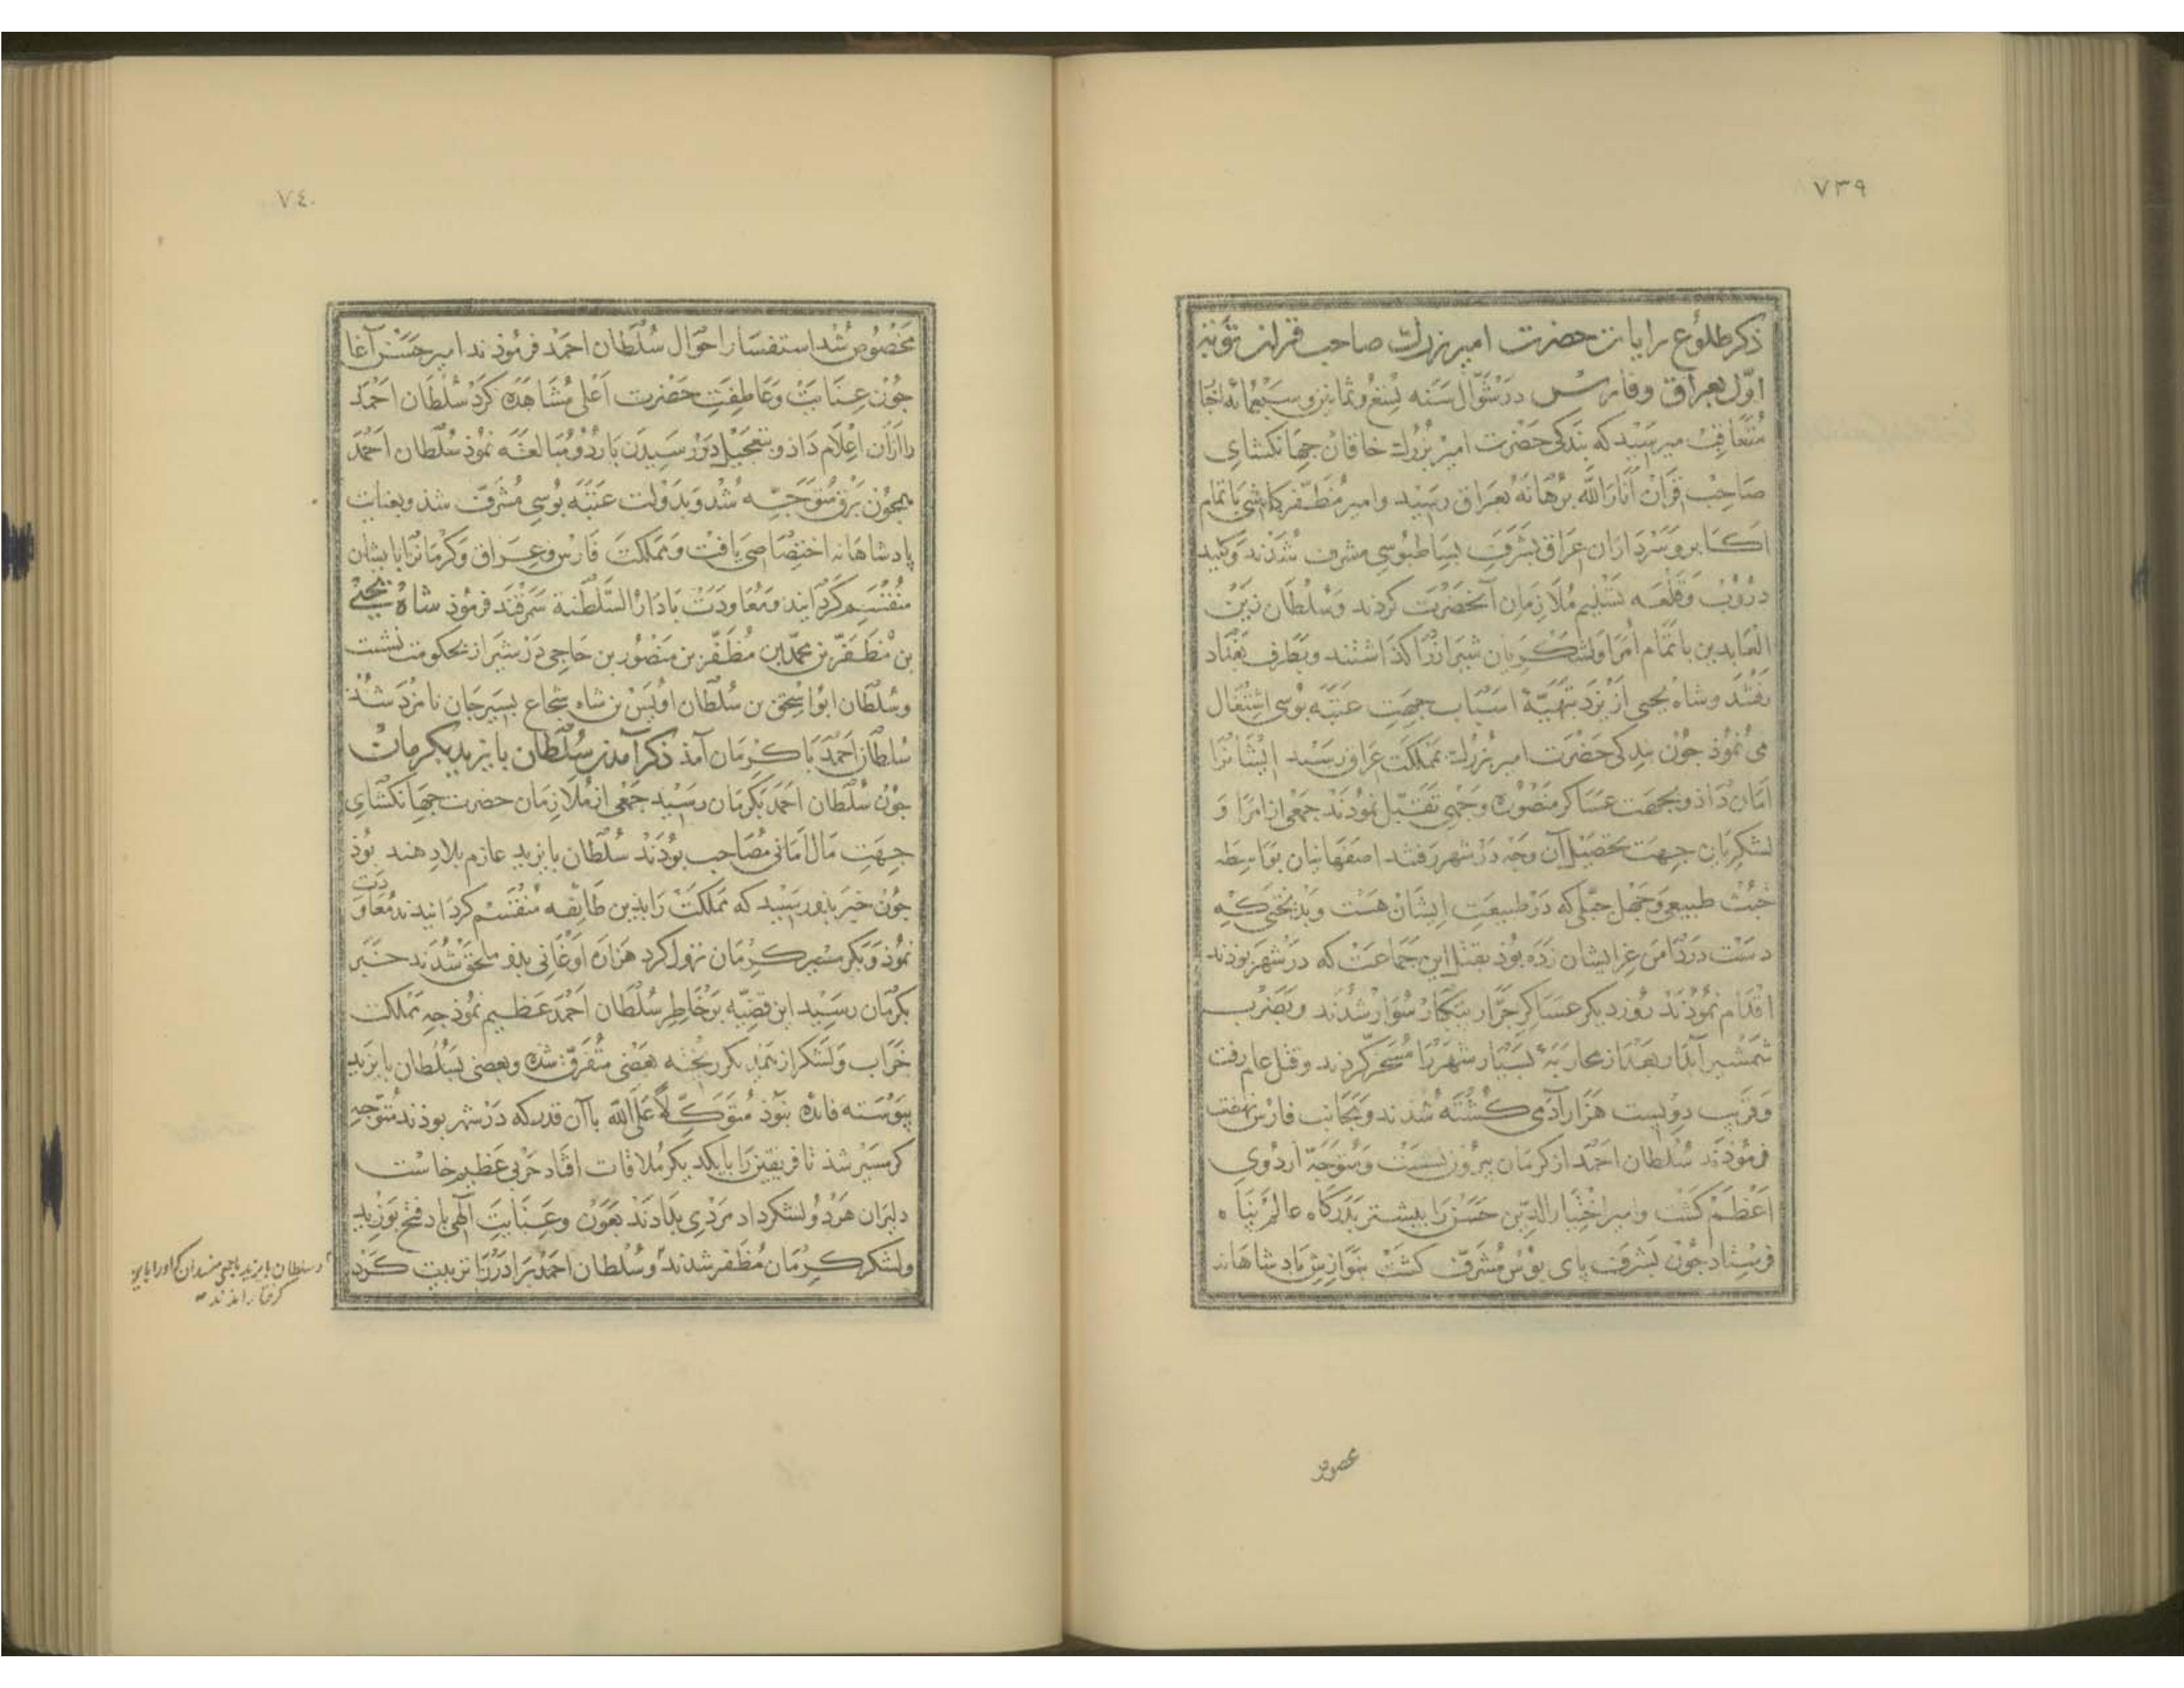 ٧٣٩
ذکر طلوع رایات حضرت امیر بزرک صاحب قران نوبت
اوّل بعراق وفارس در شوّال سنه تسع وثمانین وسبعمائه اخبار
متعاقب میرسید که بندکی حضرت امیر بزرک خاقان جهانکشای
صاحب قران انار الله برهانه بعراق رسید وامیر مظفر کاشی با تمام
اکابر وسرداران عراق بشرف بساطبوسی مشرف شدند وکلید
دروب وقلعه تسلیم ملازمان آنحضرت کردند وسلطان زین
العابدین با تمام امرا ولشکریان شیراز را کذاشتند وبطرف بغداد
رفتند وشاه یحیی از یزد بتهیّهٔ اسباب جهت عتبه بوسی اشتغال
می نموذ جون بندکی حضرت امیر بزرک بمملکت عراق رسید ایشانرا
امان داذ وبجهت عساکر منصوره وجهی تقبّل نموذند جمعی از امرا و
لشکریان جهت تحصیل آن وجه در شهر رفتند اصفهانیان بواسطه
خبث طبیعی وجهل جبلّی که در طبیعت ایشان هست وبذبختی که
دست در دامن عز ایشان زده بوذ بقتل این جماعت که در شهر بوذند
اقدام نموذند روز دیکر عساکر جرّار بیکبار سوار شدند وبضرب
شمشیر آبدار بعد از محاربهٔ بسیار شهر را مسخر کردند وقتل عام رفت
وقریب دویست هزار آدمی کشته شدند وبجانب فارس نهضت
فرموذند سلطان احمد از کرمان بیرون نشست ومتوجه اردوی
اعظم کشت وامیر اختیار الدین حسن را بیشتر بدرکاه عالم پناه
فرستاد جون بشرف پای بوس مشرف کشت بنوازش پادشاهانه
٧٤٠
مخصوص شد استفسار احوال سلطان احمد فرموذند امیر حسن آغا
جون عنایت وعاطفت حضرت اعلی مشاهده کرد سلطان احمد
را از آن اعلام داذ وبتعجیل در رسیدن باردو مبالغه نموذ سلطان احمد
همجون برق متوجه شد وبدولت عتبه بوسی مشرف شذ وبعنایت
پادشاهانه اختصاصی یافت ومملکت فارس وعراق وکرمانرا بایشان
منقسم کردانید ومعاودت با دار السلطنة سمرقند فرموذ شاه یحیی
بن مظفر بن محمد بن مظفر بن منصور بن حاجی در شیراز بحکومت نشست
وسلطان ابو اسحق بن سلطان اویس بن شاه شجاع بسیرجان نامزد شذ
سلطان احمد با کرمان آمذ ذکر آمدن سلطان بایزید بکرمان
جون سلطان احمد بکرمان رسید جمعی از ملازمان حضرت جهانکشای
جهت مال امانی مصاحب بوذند سلطان بایزید عازم بلاد هند بوذ
جون خبر بذو رسید که مملکت را بذین طایفه منقسم کردانیدند معاودت
نموذ وبکرمسیر کرمان نزول کرد هزاره اوغانی بذو ملحق شدند خبر
بکرمان رسید این قضیّه بر خاطر سلطان احمد عظیم نموذ جه مملکت
خراب ولشکر از بکریخته بعضی متفرق شده وبعضی بسلطان بایزید
پیوسته فائده نبوذ متوکّلاً علی الله با آن قدر که در شهر بوذند متوجه
کرمسیر شذ تا فریقین را با یکدیکر ملاقات افتاد حربی عظیم خاست
دلیران هر دو لشکر داد مردی بدادند بعون وعنایت الهی باد فتح بوزید
ولشکر کرمان مظفر شدند وسلطان احمد برادر را تربیت کرد
و سلطان بایزید با جمعی
کرفتار آمدند